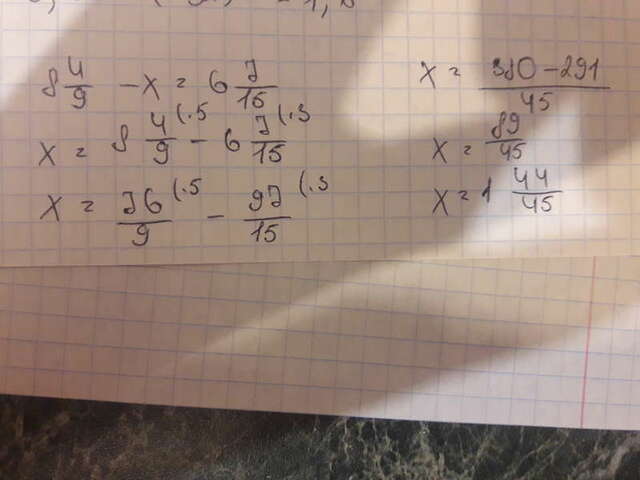 8 4/9 - x = 6 7/15
x = 8 4/9 (·5 - 6 7/15 (·3
x = 76/9 (·5 - 97/15 (·3
x = 380-291/45
x = 89/45
x = 1 44/45